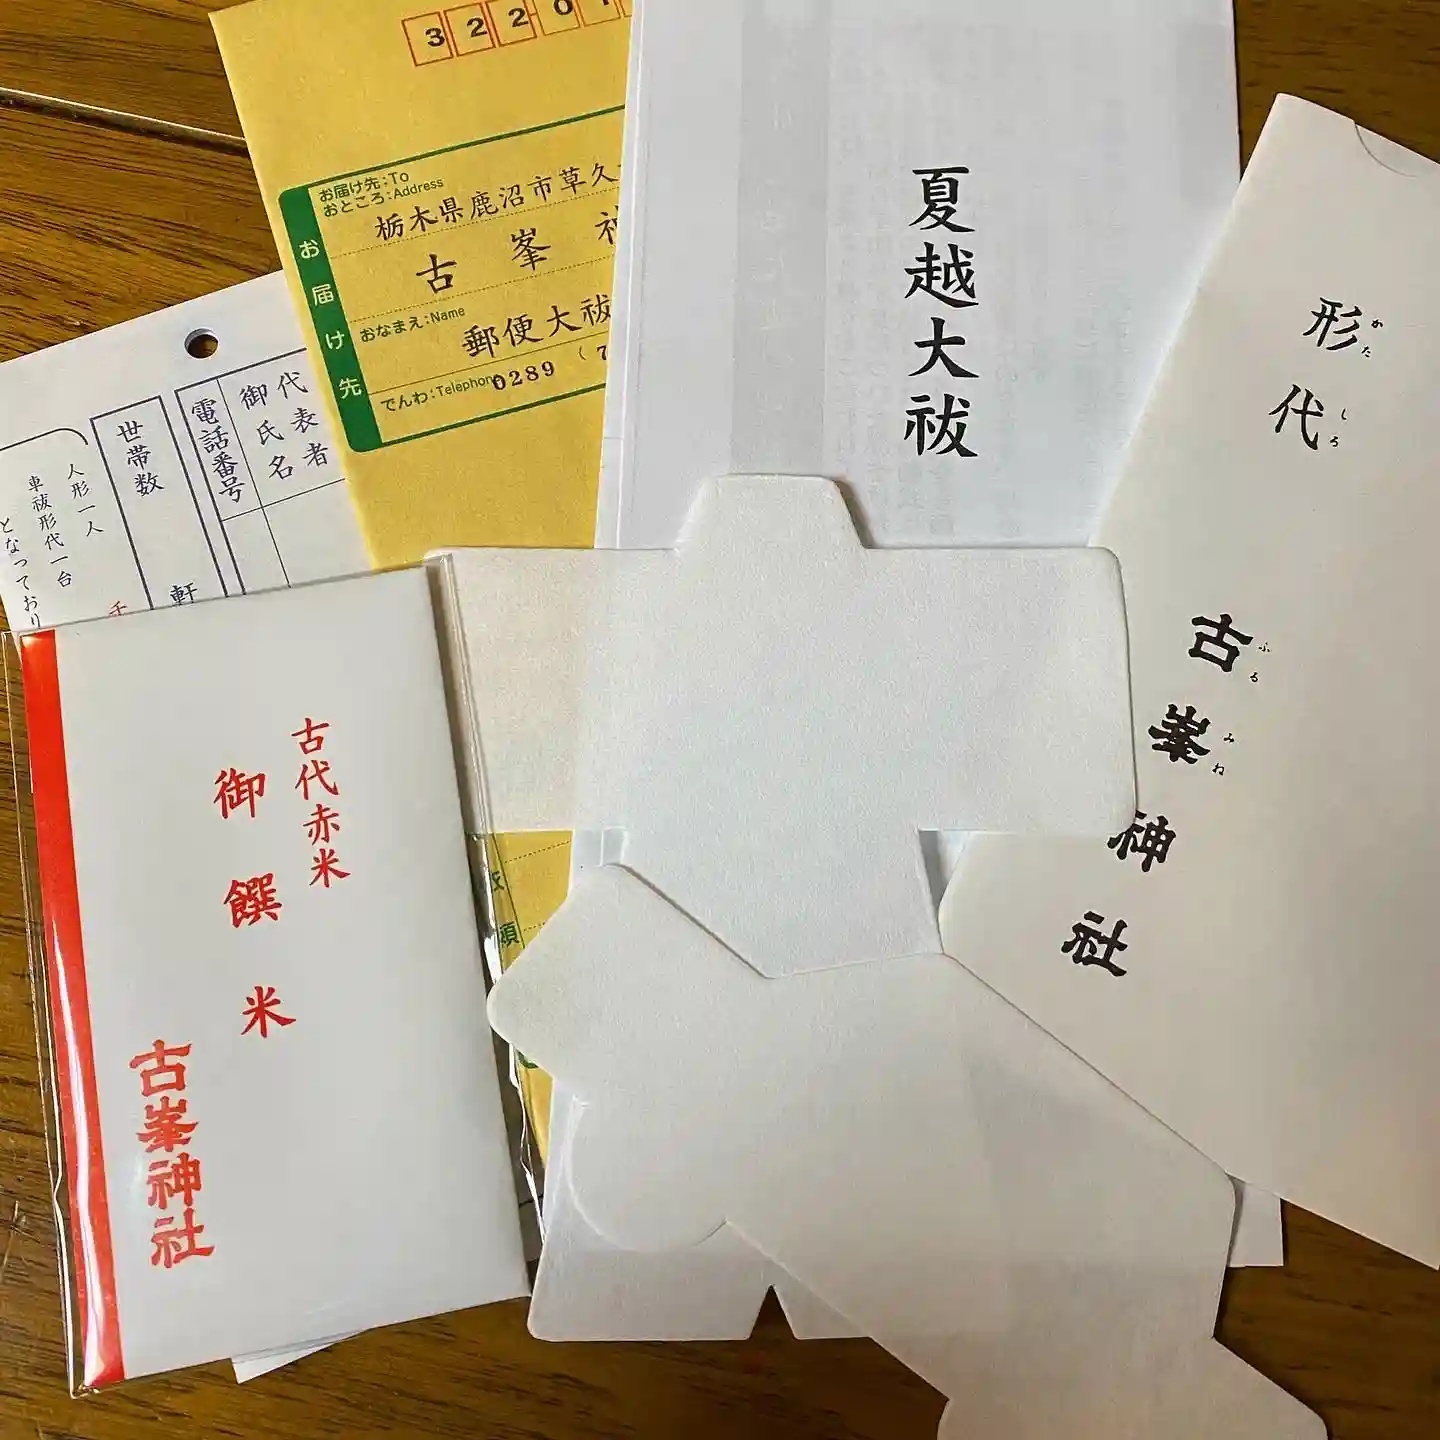 32201
お届け先:To
おところ:Address
栃木県鹿沼市草久
古峯神
おなまえ:Name
郵便大祓
でんわ:Telephone
0289 (7
お届け先
夏越大祓
形代
かたしろ
古峯神社
ふるみね
代表者
御氏名
電話番号
世帯数
軒
人形一人
車祓形代一台
となっており
古代赤米
御饌米
古峯神社